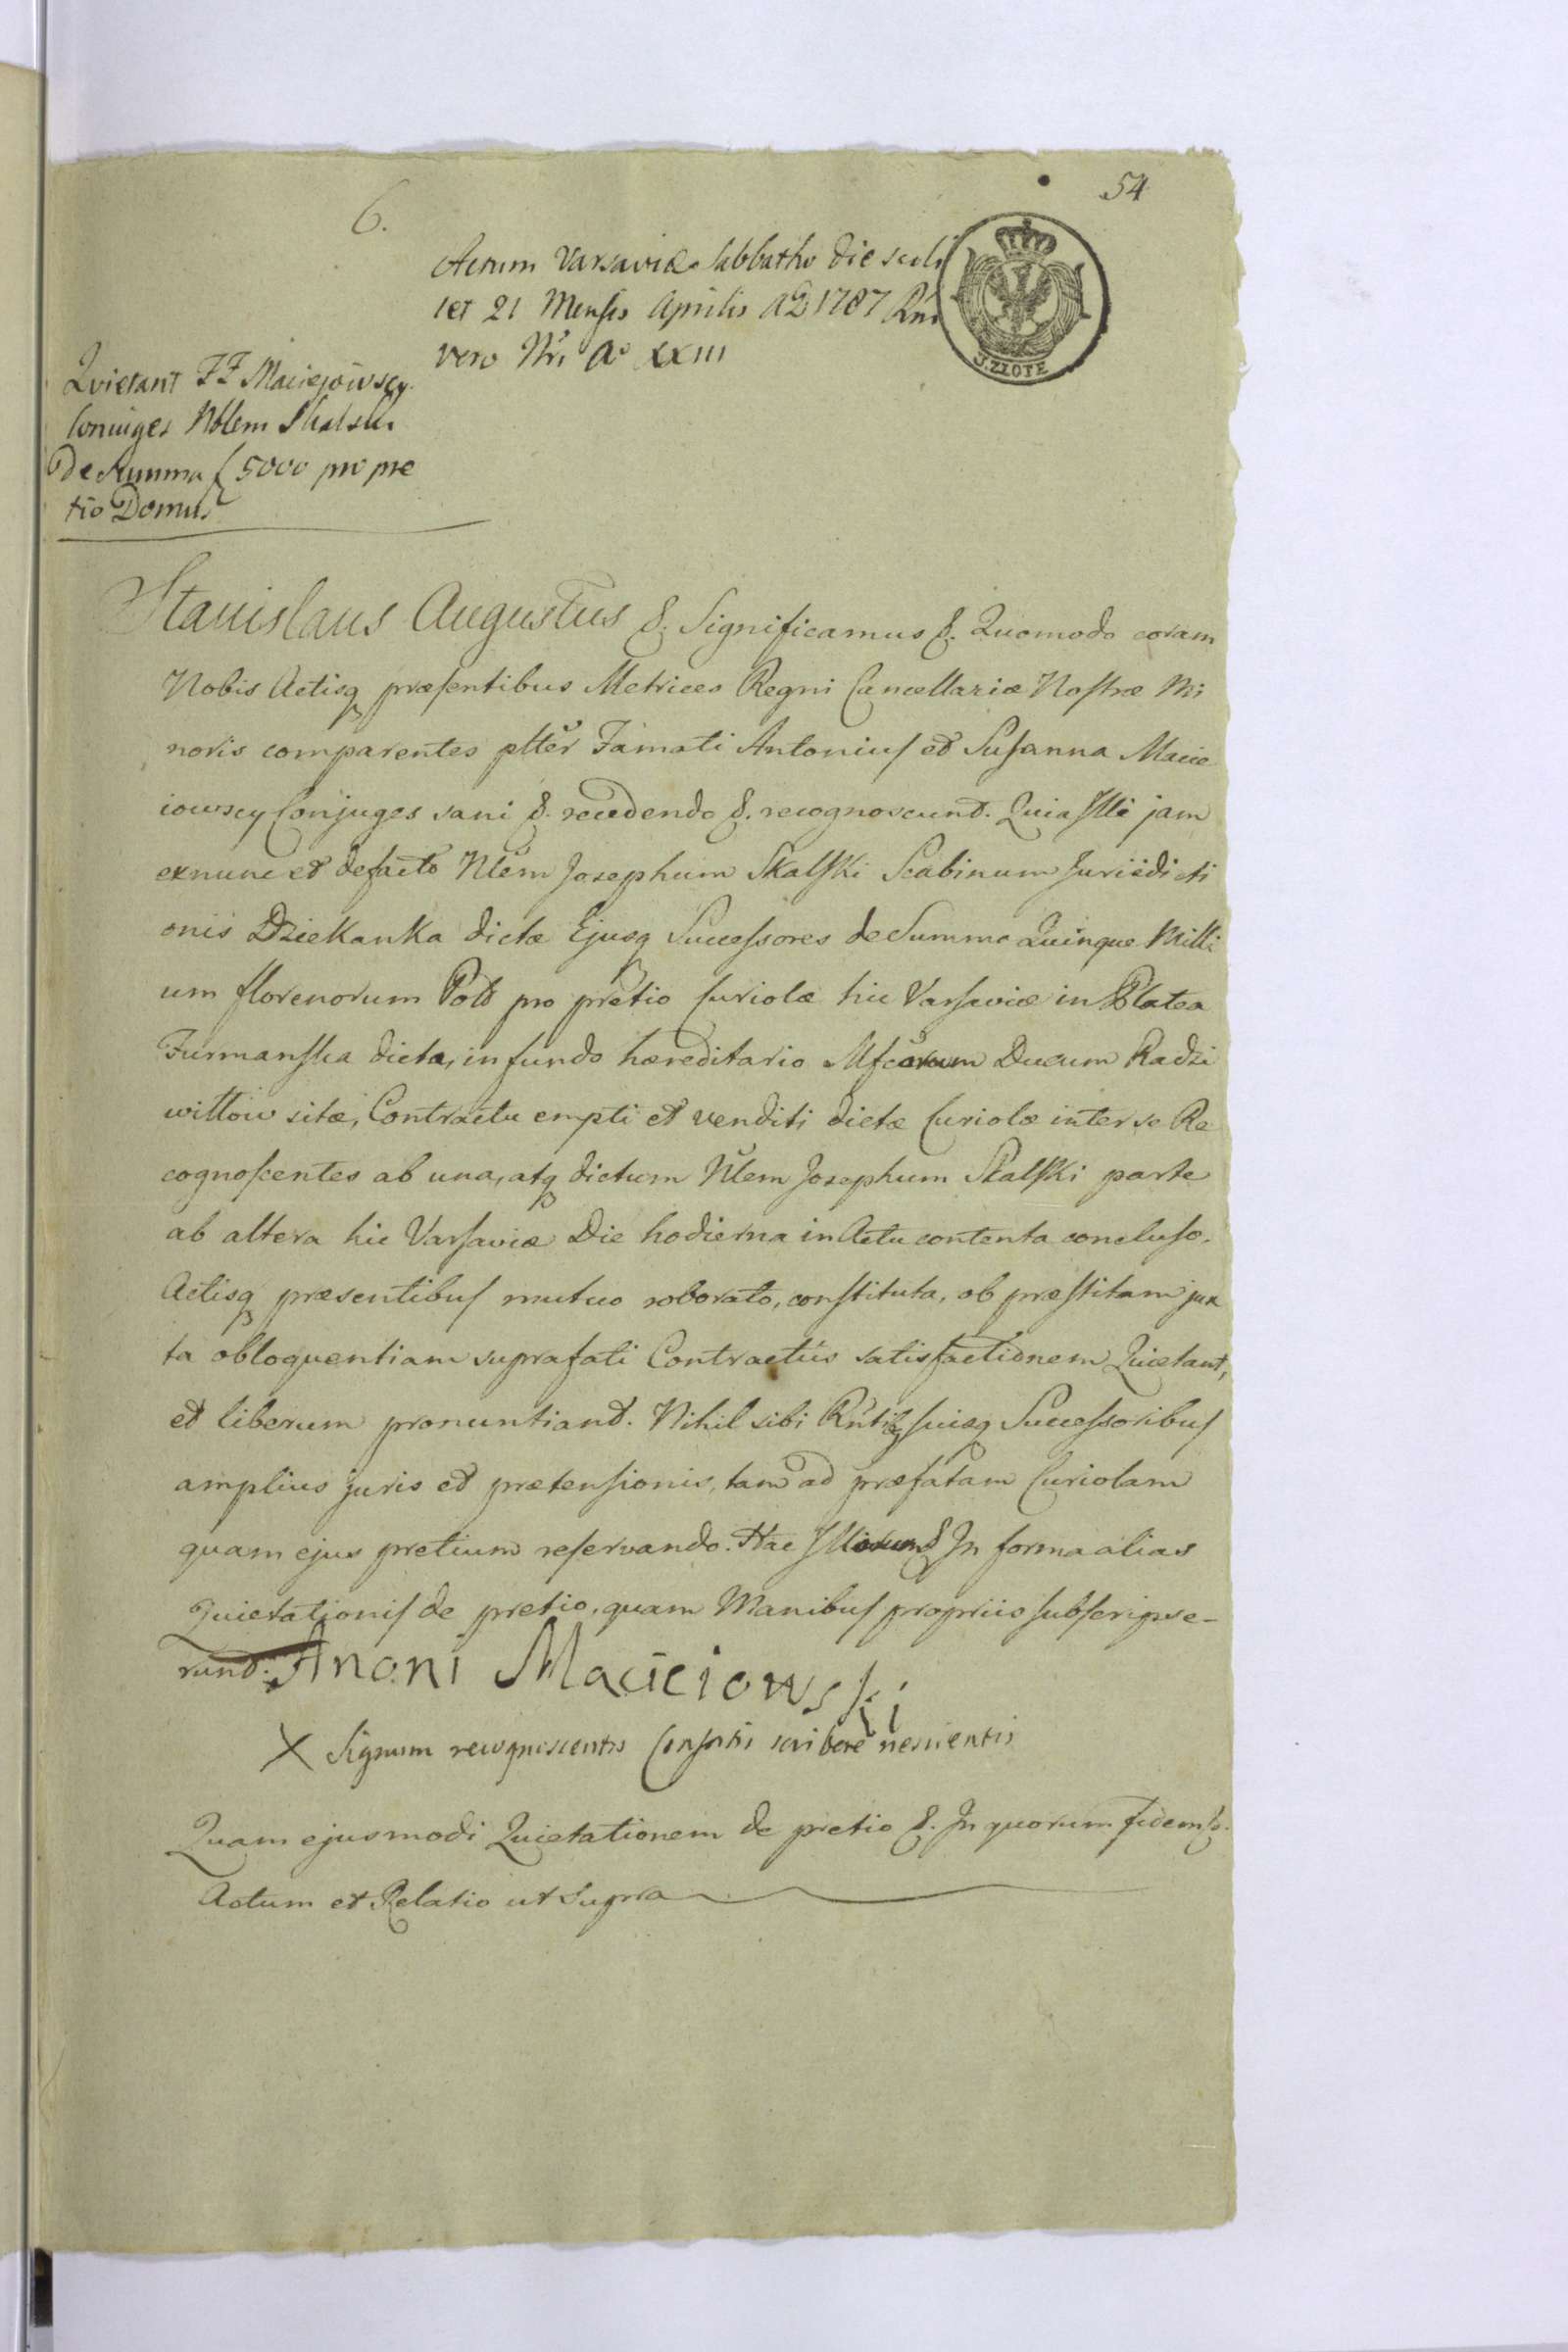 54
6.
Actum Varsaviæ Sabbatho die scili
cet 21 Mensis Aprilis AD 1787 Rni
vero Nri Ao XXIII
J. ZŁOTE
Qvietant FF Maciejowscy
Coniuges Nblem Skalski
De Summa f 5000 pro pre
tio Domus
Stanislaus Augustus &. Significamus &. Quomodo coram
Nobis Actisq præsentibus Metrices Regni Cancellariæ Nostræ Mi
noris comparentes plter Famati Antonius et Susanna Macie
iowscy Conjuges sani &. recedendo &. recognoscunt. Quia Illi jam
exnunc et defacto Nlem Josephum Skalski Scabinum Jurisdicti
onis Dziekanka dictæ Ejusq Successores de Summa Quinque Milli
um florenorum Pold pro pretio Curiolæ hic Varsaviæ in Platea
Furmanska dicta, in fundo hæreditario Mfcorum Ducum Radzi
wiłłow sitæ, Contractu empti et venditi dictæ Curiolæ inter se Re
cognoscentes ab una, atq dictum Nlem Josephum Skalski parte
ab altera hic Varsaviæ Die hodierna in Actu contenta concluso.
Actisq præsentibus mutuo roborato, constituta, ob præstitam jux
ta obloquentiam suprafati Contractûs satisfactionem Quietant,
et liberum pronuntiant. Nihil sibi Rntibq suisq Successoribus
amplius juris et prætensionis, tam ad præfatam Curiolam
quam ejus pretium reservando. Hac Illorum &. In forma alias
Quietationis de pretio, quam Manibus propriis subscripse-
runt. Anoni Macieiowski
X Signum recognoscentis Consortis scribere nescientis
Quam ejusmodi Quietationem de pretio &. In quorum fidem &.
Actum et Relatio ut Supra